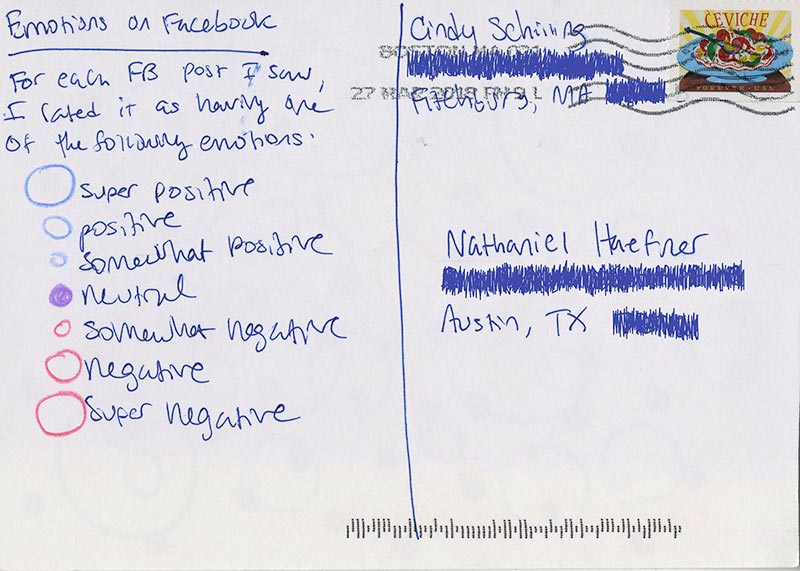 Emotions on Facebook
For each FB post I saw,
I rated it as having one
of the following emotions:
super positive
positive
somewhat positive
neutral
somewhat negative
negative
Super negative
Cindy Schiling
BOSTON MA 021
27 MAR 2018 PM 9 L
Fitchburg, MA
CEVICHE
FOREVER • USA
Nathaniel Haefner
Austin, TX